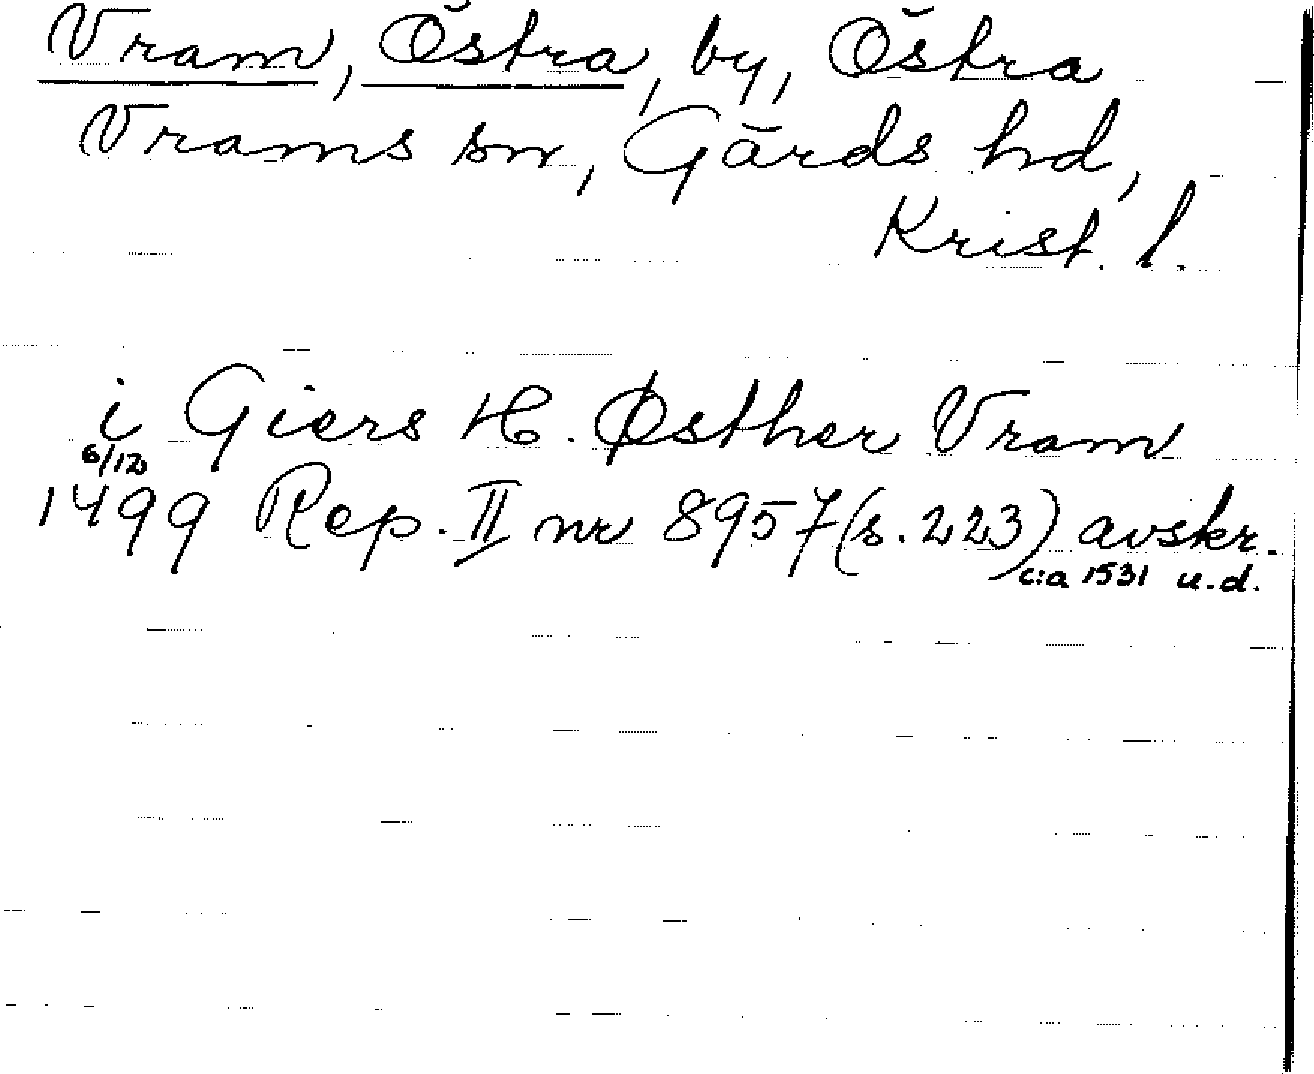 Vram, Östra, by, Östra
Vrams sn, Gärds hd,
Krist. l.
i Giers H. Østher Vram
6/12
1499 Rep. II nr 8957 (s. 223) avskr.
c:a 1531 u.d.